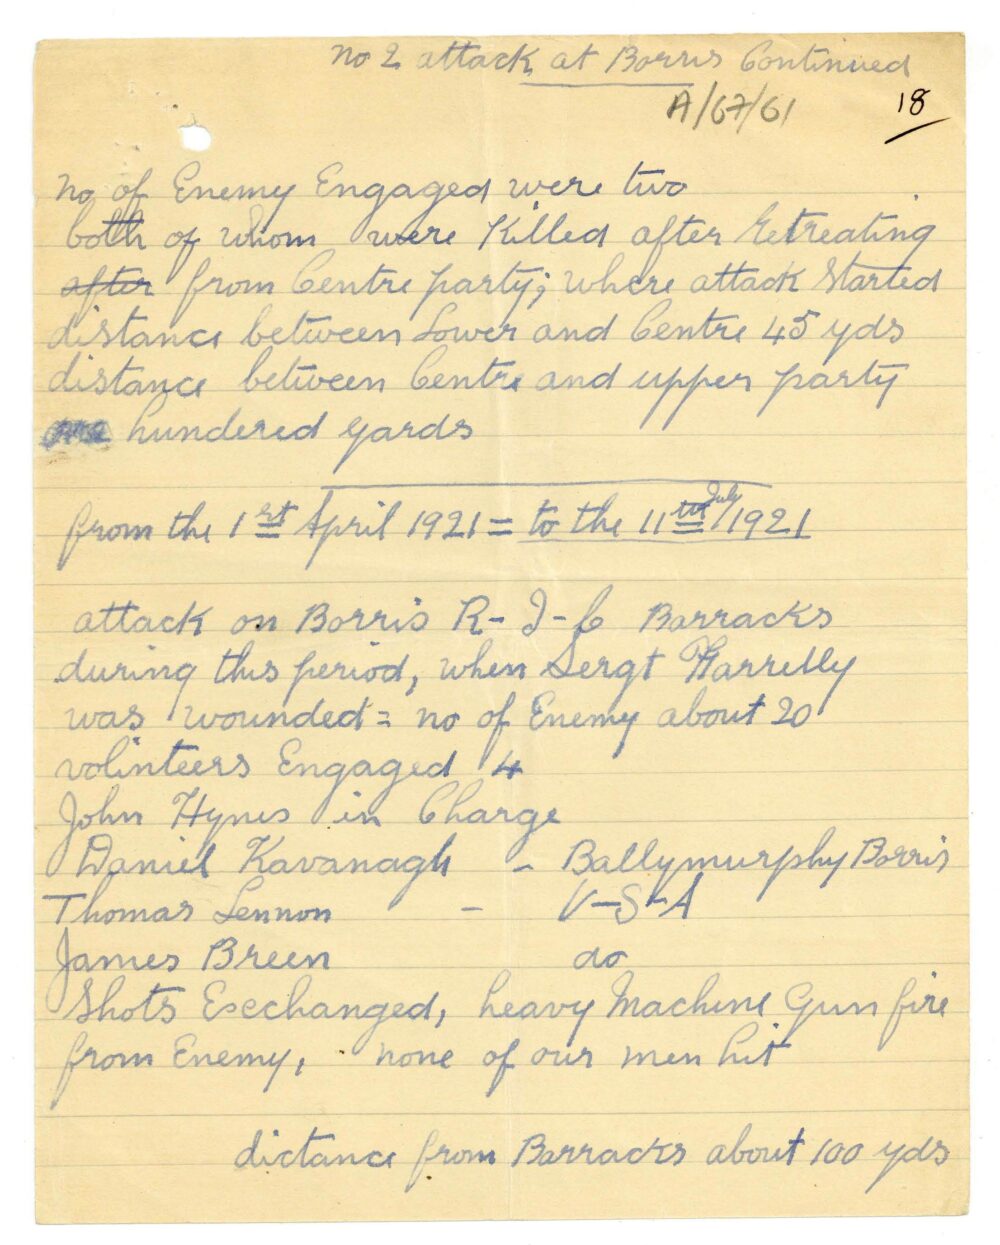 No 2 attack at Borris Continued
A/67/61
18
No of Enemy Engaged were two
both of whom were Killed after Retreating
after from Centre party; where attack Started
distance between Lower and Centre 45 yds
distance between Centre and upper party
hundered yards
from the 1st April 1921 = to the 11th July 1921
attack on Borris R-I-C Barracks
during this period, when Sergt Farrelly
was wounded = no of Enemy about 20
volinteers Engaged 4
John Hynes in Charge
Daniel Kavanagh - Ballymurphy Borris
Thomas Lennon - U-S-A
James Breen do
Shots Excchanged, heavy Machine Gun fire
from Enemy, none of our men hit
distance from Barracks about 100 yds